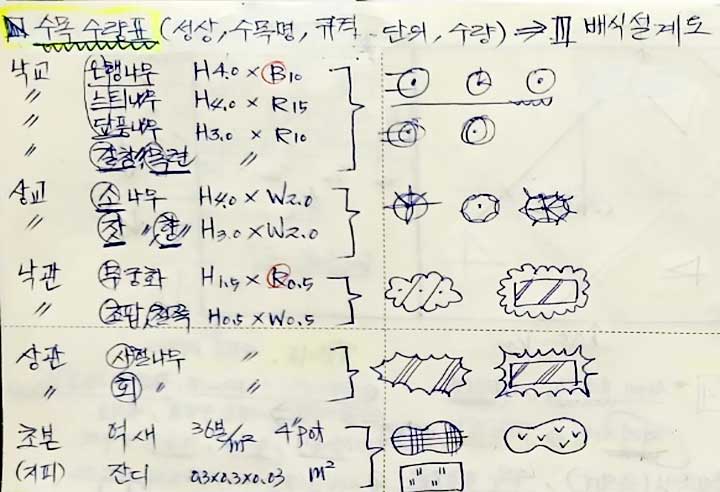 Ⅳ 수목 수량표 (성상, 수목명, 규격 - 단위, 수량) ⇒ Ⅲ 배식설계도
낙교 은행나무 H4.0 × B10
〃 느티나무 H4.0 × R15
〃 단풍나무 H3.0 × R10
〃 〃
상교 소나무 H4.0 × W2.0
〃 잣 〃 향 H3.0 × W2.0
낙관 무궁화 H1.5 × R0.5
〃 조팝, 철쭉 H0.5 × W0.5
상관 사철나무 〃
〃 회 〃 〃
초본 억새 36본/m² 4"pot
(지피) 잔디 0.3×0.3×0.03 m²